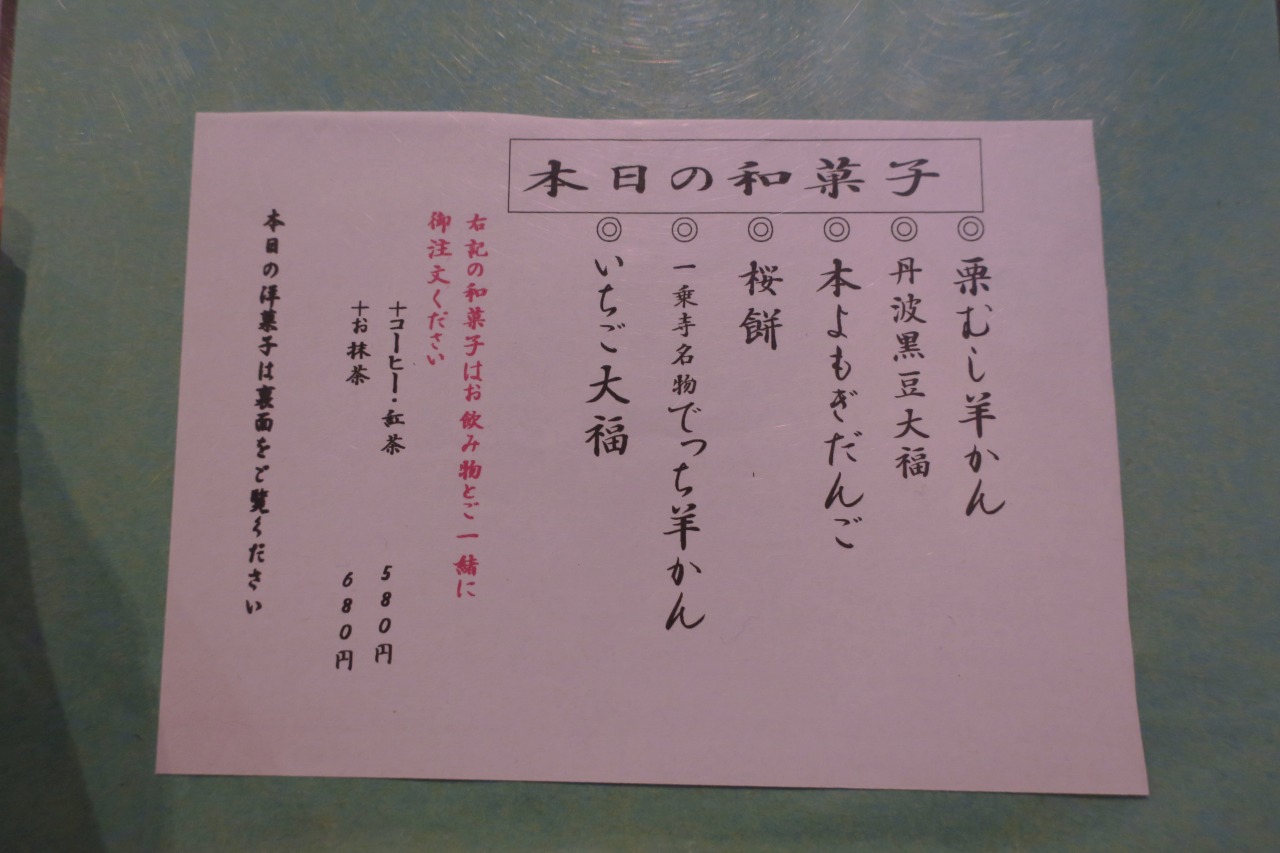 本日の和菓子
◎栗むし羊かん
◎丹波黒豆大福
◎本よもぎだんご
◎桜餅
◎一乗寺名物でっち羊かん
◎いちご大福
右記の和菓子はお飲み物とご一緒に
御注文ください
＋コーヒー・紅茶 580円
＋お抹茶 680円
本日の洋菓子は裏面をご覧ください